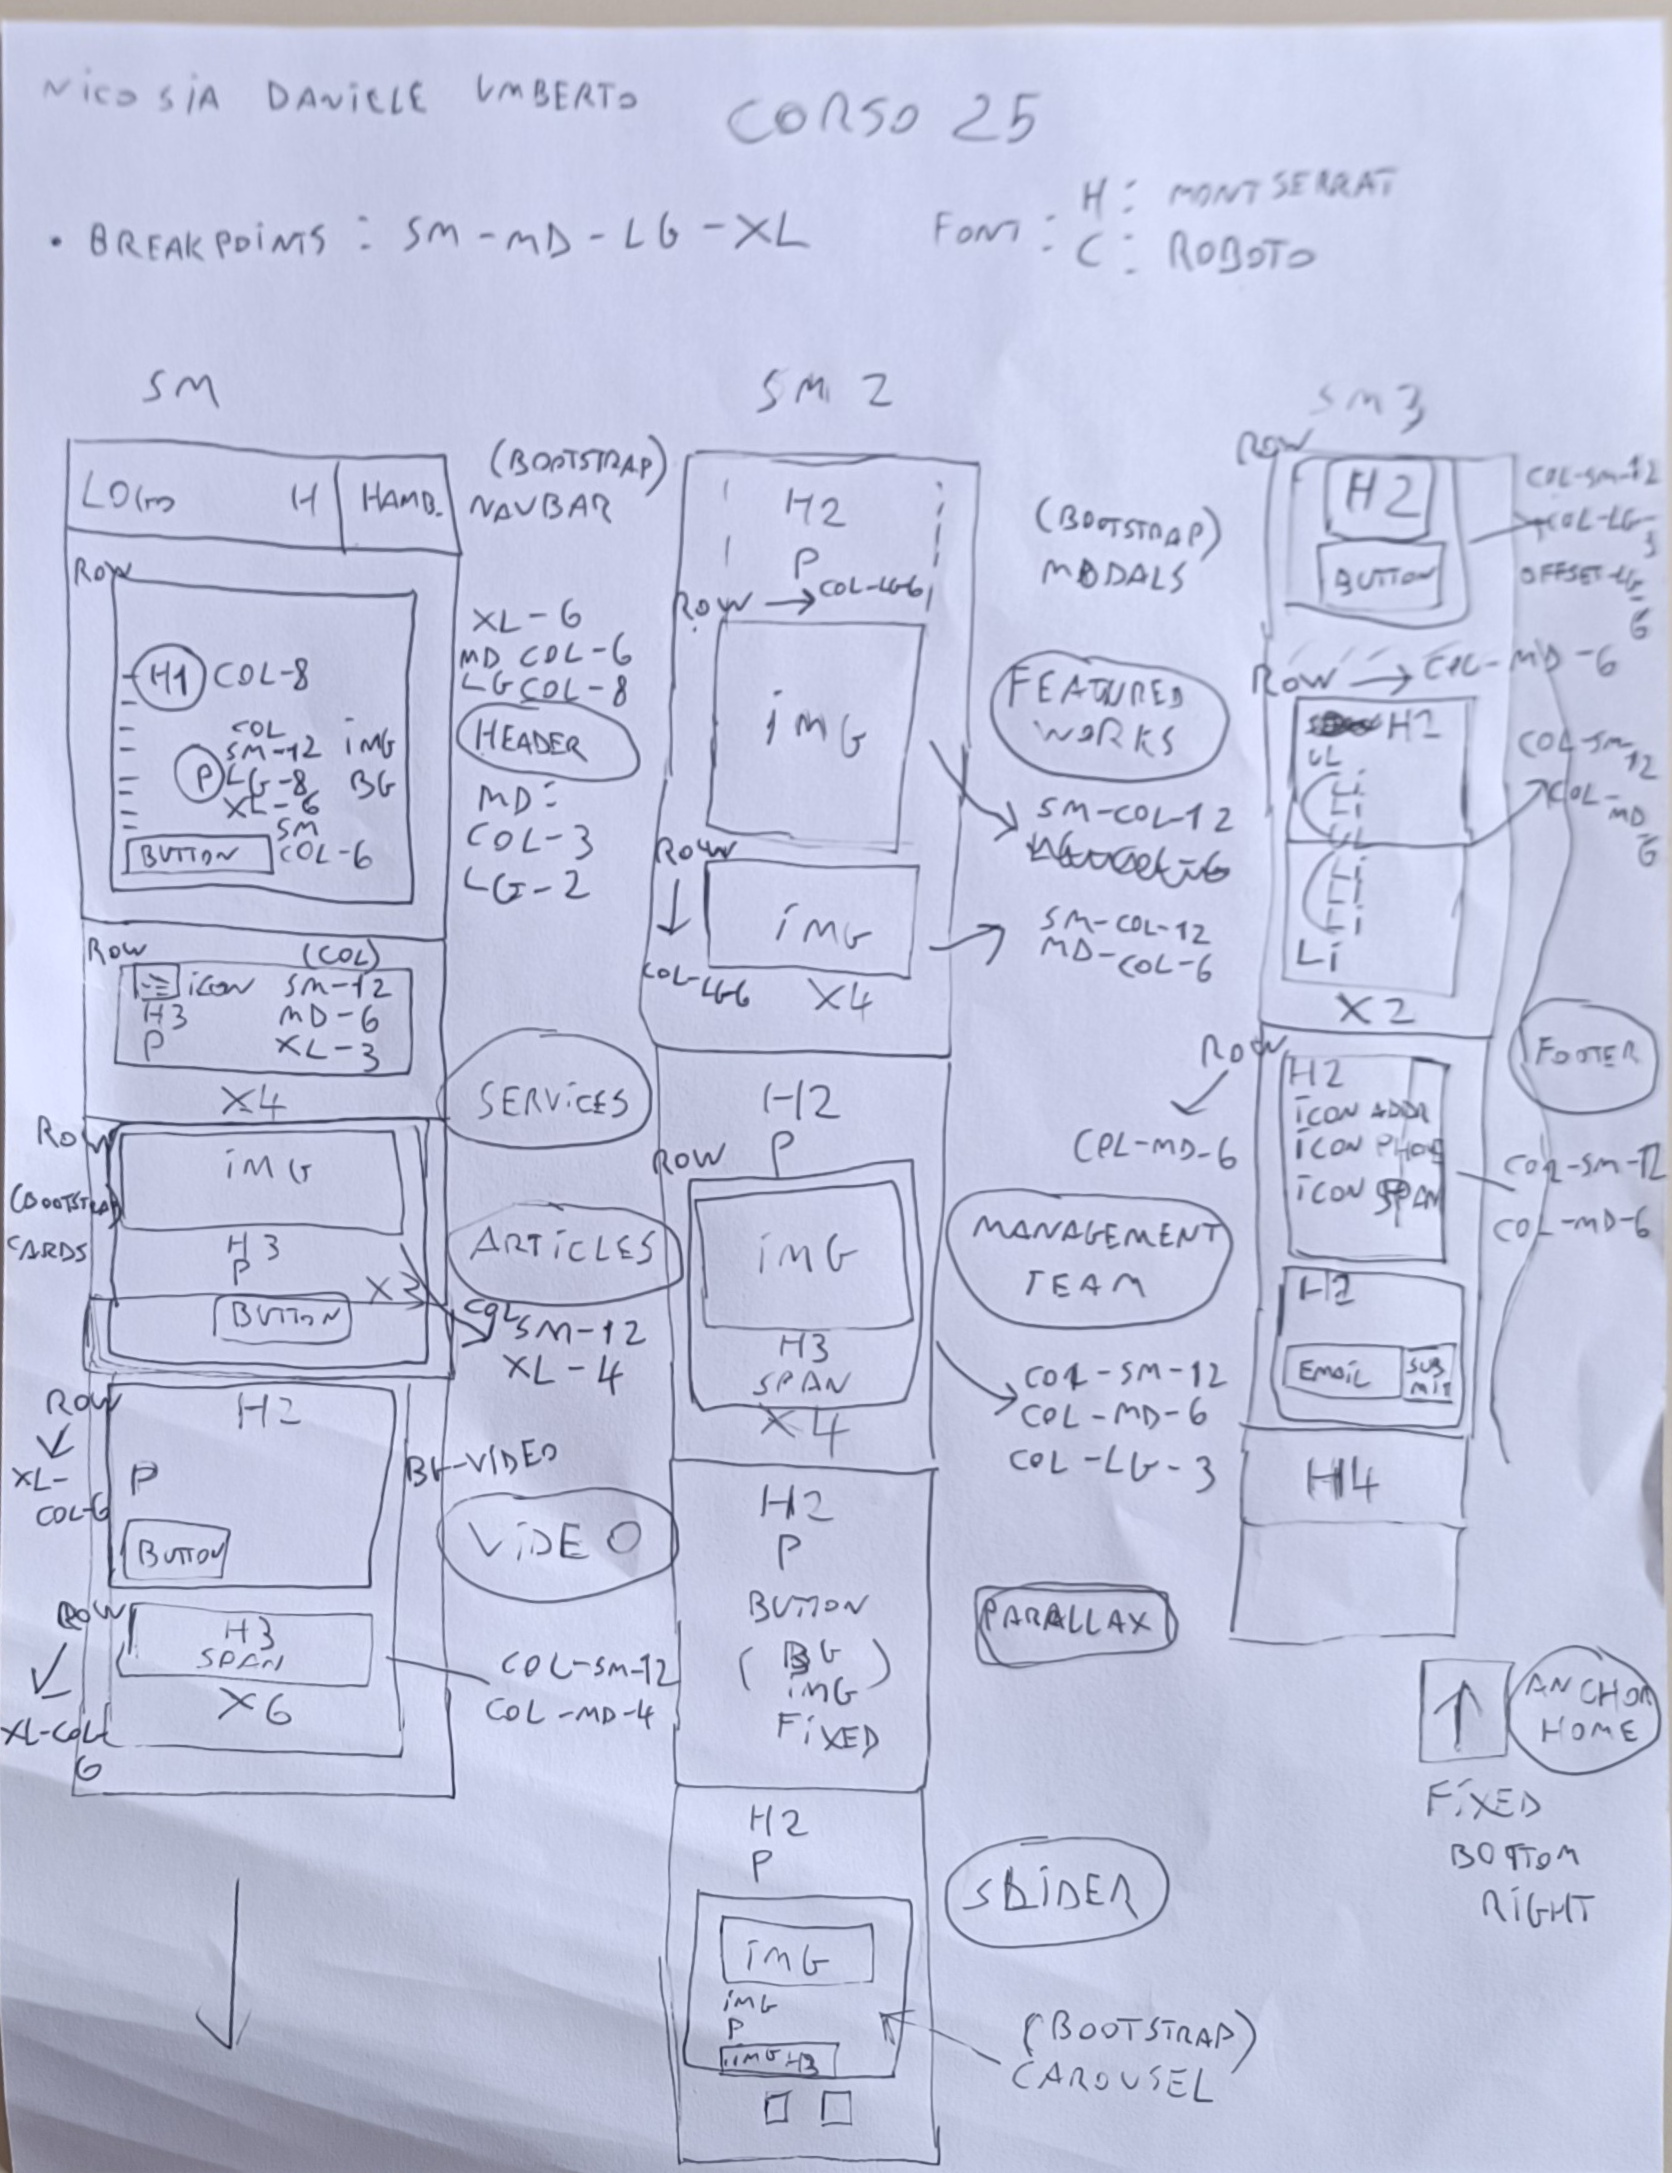 NICOSIA DANIELE UMBERTO
CORSO 25
• BREAKPOINTS : SM-MD-LG-XL
FONT :
H : MONTSERRAT
C : ROBOTO
SM
LOGO H HAMB.
(BOOTSTRAP)
NAVBAR
ROW
H1 COL-8
COL
SM-12
P LG-8
XL-6
IMG
BG
SM
BUTTON COL-6
XL-6
MD COL-6
LG COL-8
HEADER
MD:
COL-3
LG-2
ROW (COL)
ICON SM-12
H3 MD-6
P XL-3
X4
SERVICES
ROW
IMG
(BOOTSTRAP)
CARDS
H3
P
X3
BUTTON
ARTICLES
COL
SM-12
XL-4
ROW
H2
XL-
COL-6
P
BUTTON
BG-VIDEO
VIDEO
ROW
H3
SPAN
X6
XL-COL
6
COL-SM-12
COL-MD-4
SM 2
H2
P
ROW → COL-LG6
IMG
ROW
IMG
COL-LG6
X4
(BOOTSTRAP)
MODALS
FEATURED
WORKS
SM-COL-12
SM-COL-12
MD-COL-6
H2
P
ROW
IMG
H3
SPAN
X4
MANAGEMENT
TEAM
COL-SM-12
COL-MD-6
COL-LG-3
H2
P
BUTTON
( BG )
IMG
FIXED
PARALLAX
H2
P
IMG
IMG
P
IMG H3
SLIDER
(BOOTSTRAP)
CAROUSEL
SM3
ROW
H2
BUTTON
COL-SM-12
COL-LG-
5
OFFSET-LG
-
6
ROW → COL-MD-6
H2
UL
LI
LI
UL
LI
LI
LI
LI
X2
COL-SM-
12
COL-
MD
6
ROW
COL-MD-6
H2
ICON ADDR
ICON PHONE
ICON SPAN
FOOTER
COL-SM-12
COL-MD-6
H2
EMAIL SUB
MIT
H4
↑
ANCHOR
HOME
FIXED
BOTTOM
RIGHT